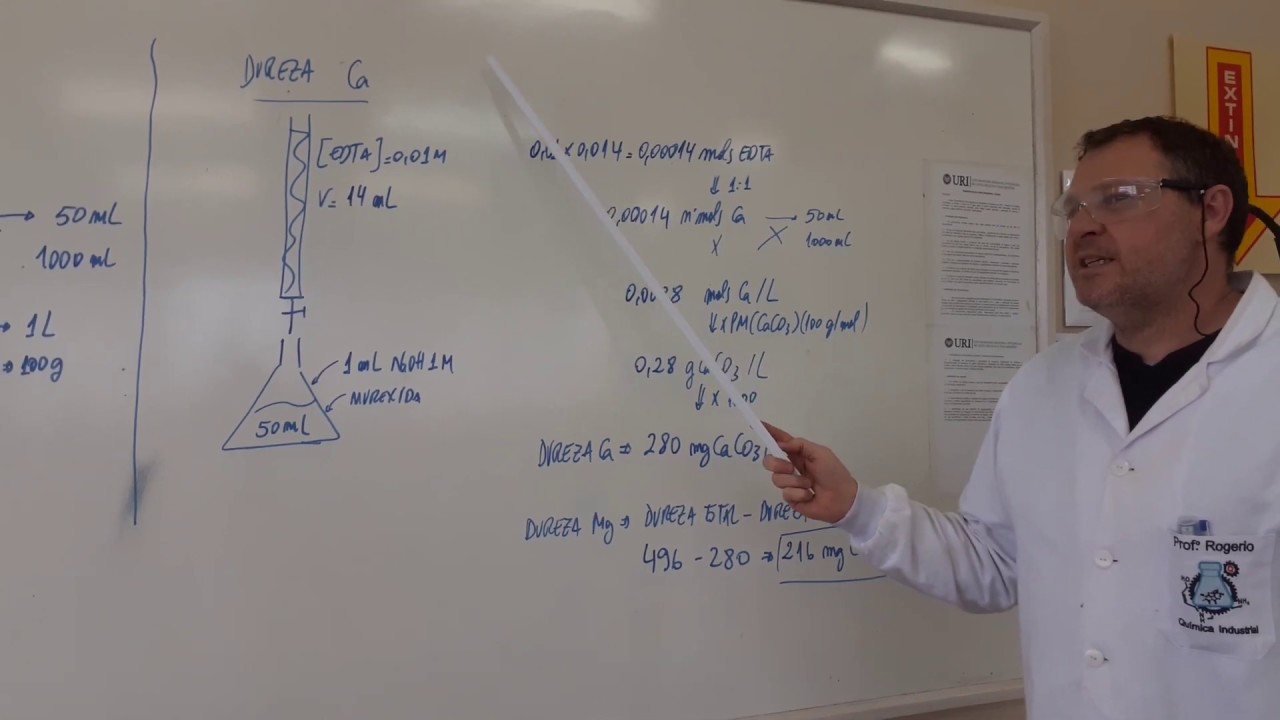 50 mL
1000 mL
1L
100g
DUREZA Ca
[EDTA]=0,01M
V= 14 mL
1 mL NaOH 1M
MUREXIDA
50mL
x 0,014 = 0,00014 mols EDTA
⇓ 1:1
0,00014 nºmols Ca → 50mL
X 1000mL
mols Ca/L
↓ x PM(CaCO3)(100 g/mol)
0,28 g CaCO3/L
⇓ x
DUREZA Ca ⇒ 280 mg CaCO3
DUREZA Mg ⇒ DUREZA TOTAL - DUREZA
496 - 280 ⇒ 216 mg
EXTIN
URI
URI
Profº Rogerio
HO
NH2
Química Industrial